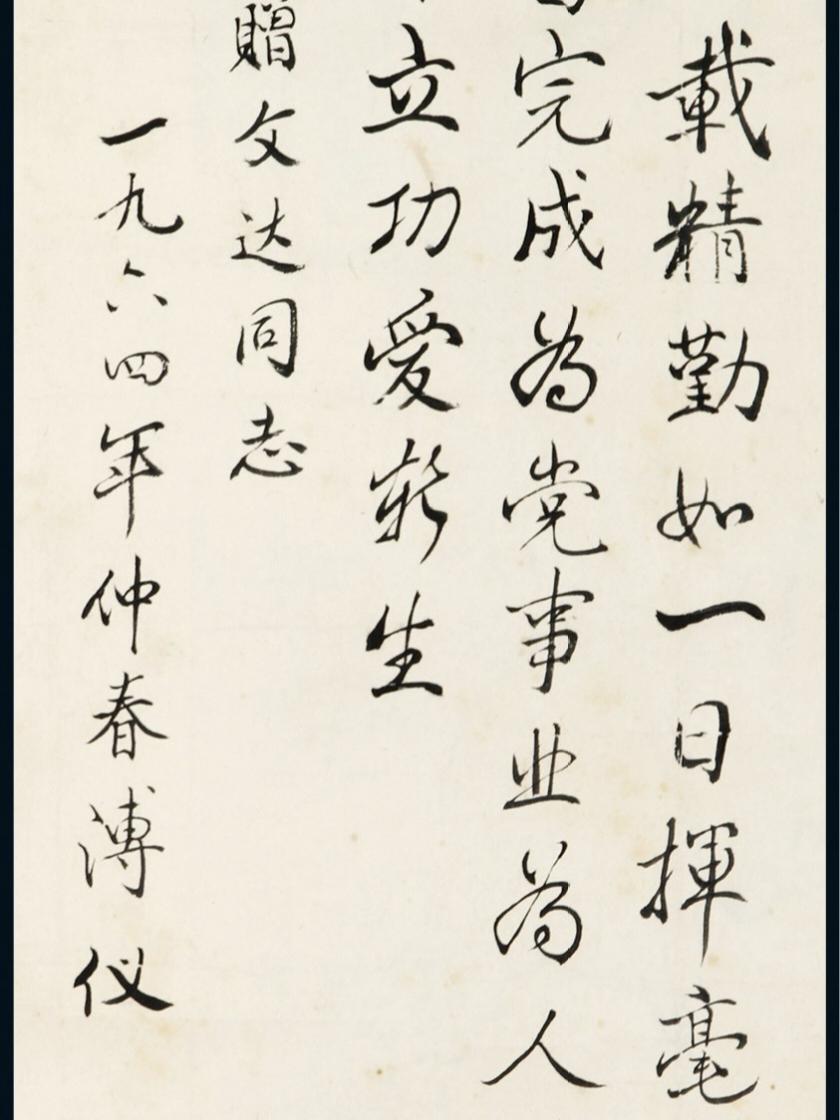 載精勤如一日揮毫
完成為党事业為人
立功爱新生
贈文达同志
一九六四年仲春溥仪